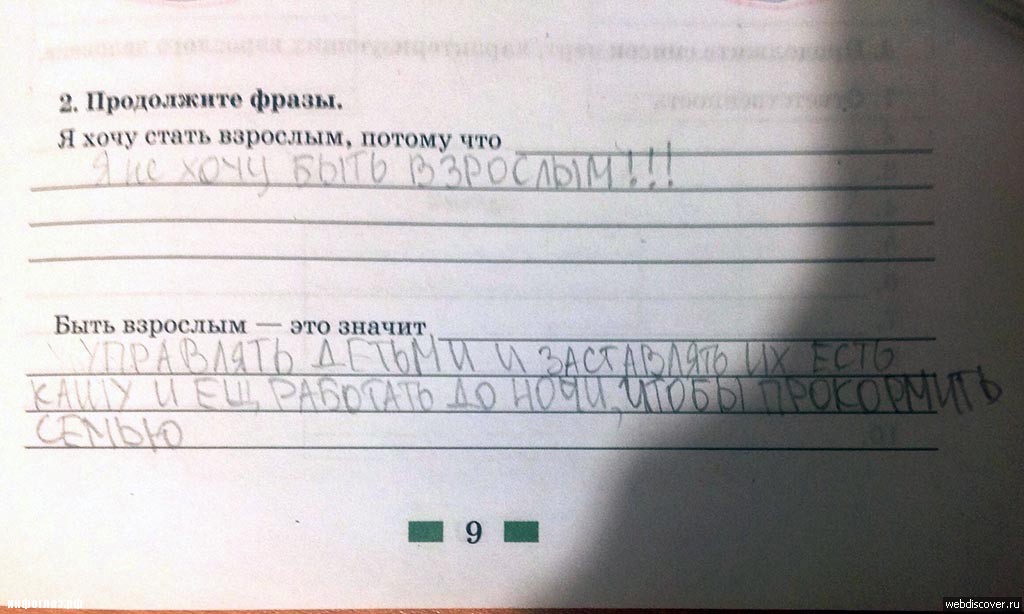 2. Продолжите фразы.
Я хочу стать взрослым, потому что
Я не хочу БЫТЬ ВЗРОСЛЫМ!!!
Быть взрослым — это значит
УПРАВЛЯТЬ ДЕТЬМИ И ЗАСТАВЛЯТЬ ИХ ЕСТЬ
КАШУ И ЕЩ РАБОТАТЬ ДО НОЧИ, ЧТОБЫ ПРОКОРМИТЬ
СЕМЬЮ
9
webdiscover.ru